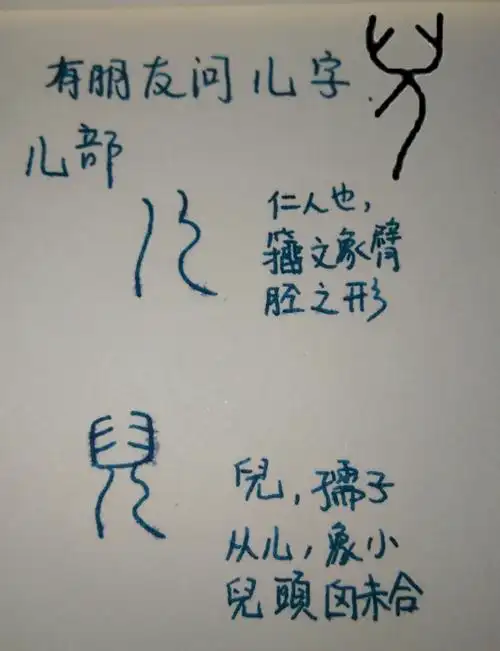 有朋友问儿字
儿部
仁人也，
籀文象臂
胫之形
兒，孺子
从儿，象小
兒頭囟未合